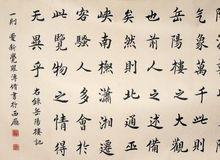 岳陽樓之大觀
也前人之述備
矣然則北通巫
峽南極瀟湘遷
客騷人多會於
此覽物之情得
無異乎
右錄岳陽樓記
一則 愛新覺羅溥書於西